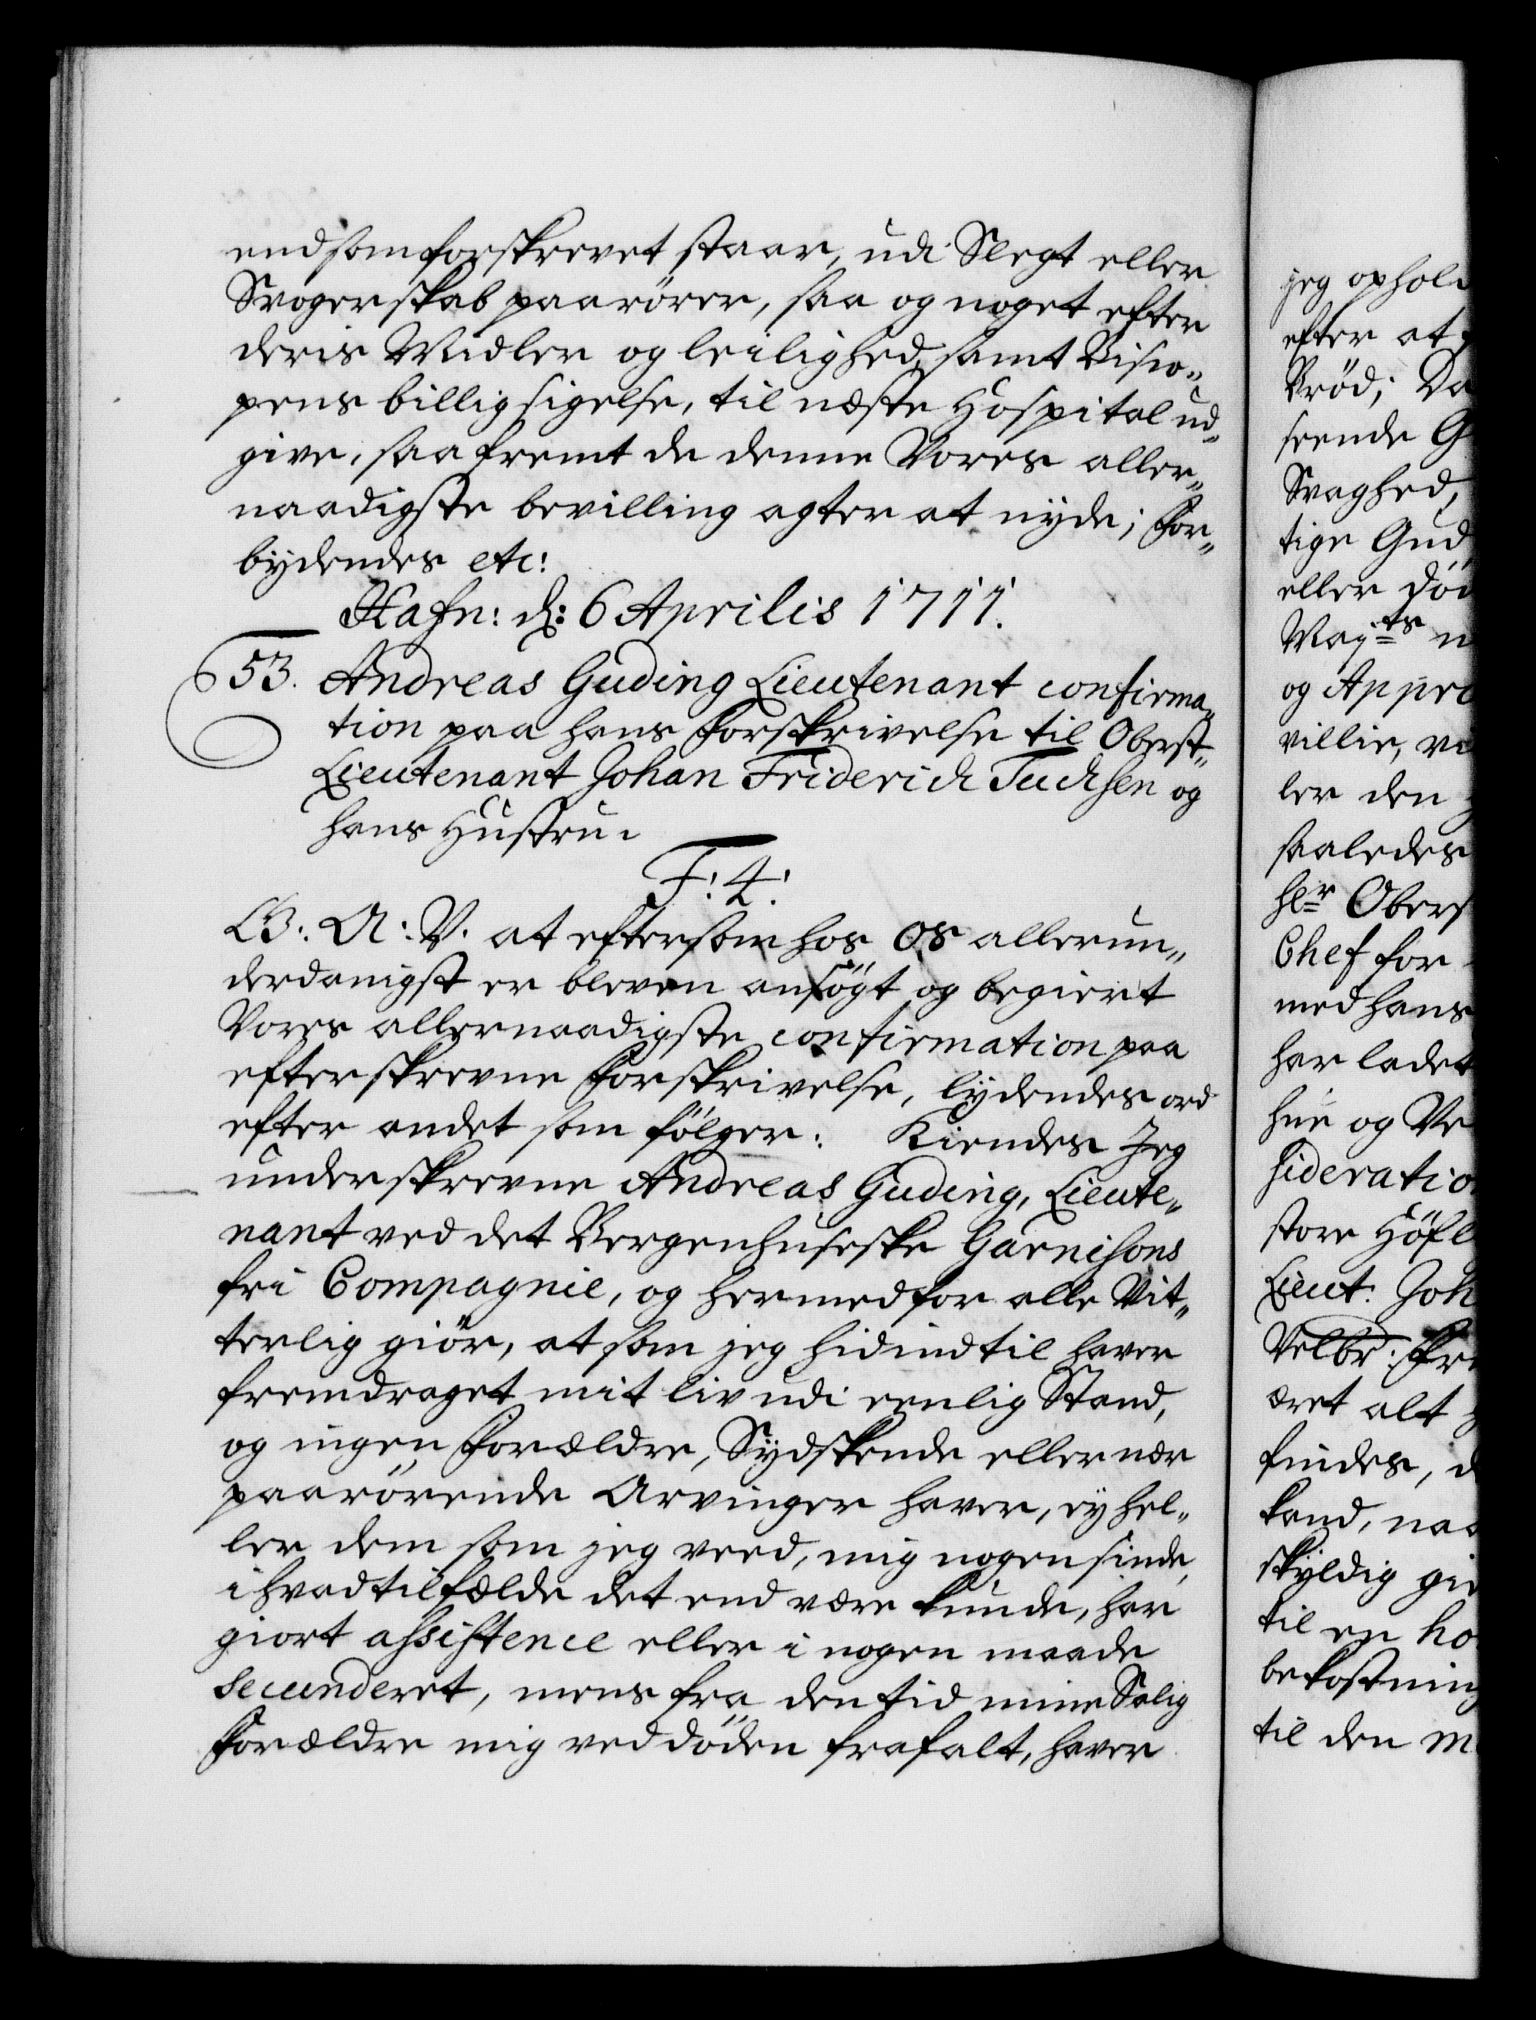 end som forskrevet staar, udi Slegt eller
Svogerskab paarører, saa og noget efter
deris Midler og leilighed, samt Bisco-
pens billig sigelse, til næste Hospital ud-
give, saafremt de denne Vores aller-
naadigste bevilling agter at nyde; For-
bydendes etc:
Hafn: d: 6 Aprilis 1711.
53. Andreas Guding Lieutenant confirma-
tion paa hans Forskrivelse til Oberst-
Lieutenant Johan Friderich Tuchsen og
hans Hustru.
F: 4:
G: A: V. at eftersom hos OS allerun-
derdanigst er bleven ansögt og begiert
Vores allernaadigste confirmation paa
efterskrevne Forskrivelse, lydendes ord
efter andet som fölger: Kiendes Jeg
underskrevne Andreas Guding, Lieute-
nant ved det Bergenhuseske Garnisons
fri Compagnie, og hermed for alle Vit-
terlig giör, at som jeg hidindtil haver
fremdraget mit liv udi eenlig Stand,
og ingen Forældre, Sydskende eller nær
paarörende Arvinger haver, ey hel-
ler dem som jeg veed, mig nogensinde,
i hvad tilfælde det end være kunde, har
giort assistence eller i nogen maade
secunderet, mens fra den tid mine Salig
Forældre mig ved döden frafalt, haver
jeg ophol
efter at
Bröd; Da
seende G
Svaghed,
tige Gud
eller Död
Mayts n
og Appro
villie, vi
ler den
saaledes
hlr Obers
Chef for
med hans
har ladet
hue og Ve
sideratio
store Höfl
Lieut: Joh
Velbr: Fr
æret alt
findes, d
kand, naa
skyldig gi
til en ho
bekostning
til den M